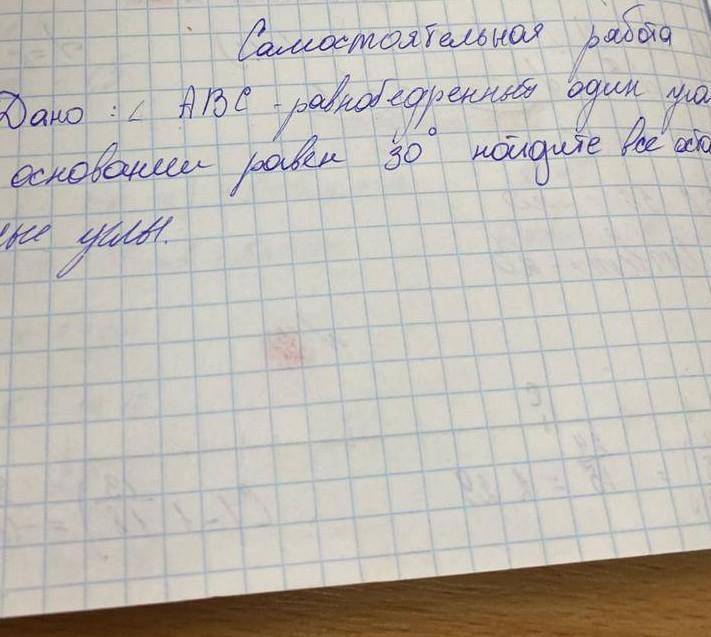 Самостоятельная работа
Дано : ∠ АВС - равнобедренный один уго
основании равен 30° найдите все оста
ные углы.